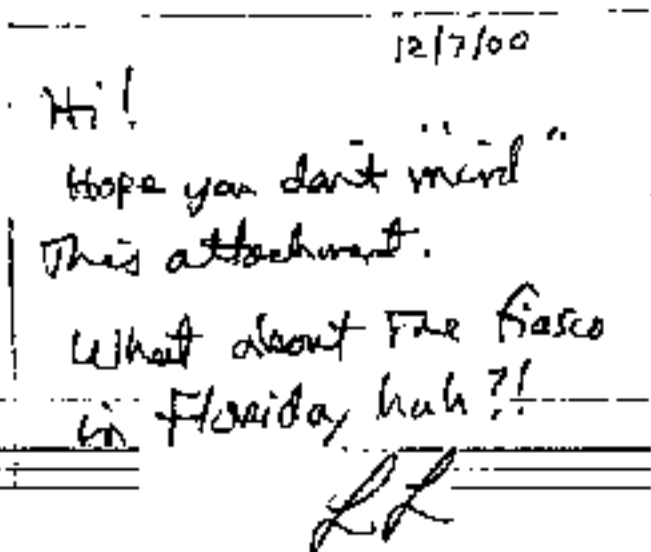 12/7/00
Hi!
Hope you don't "mind"
This attachment.
What about The fiasco
in Florida, huh?!
LL